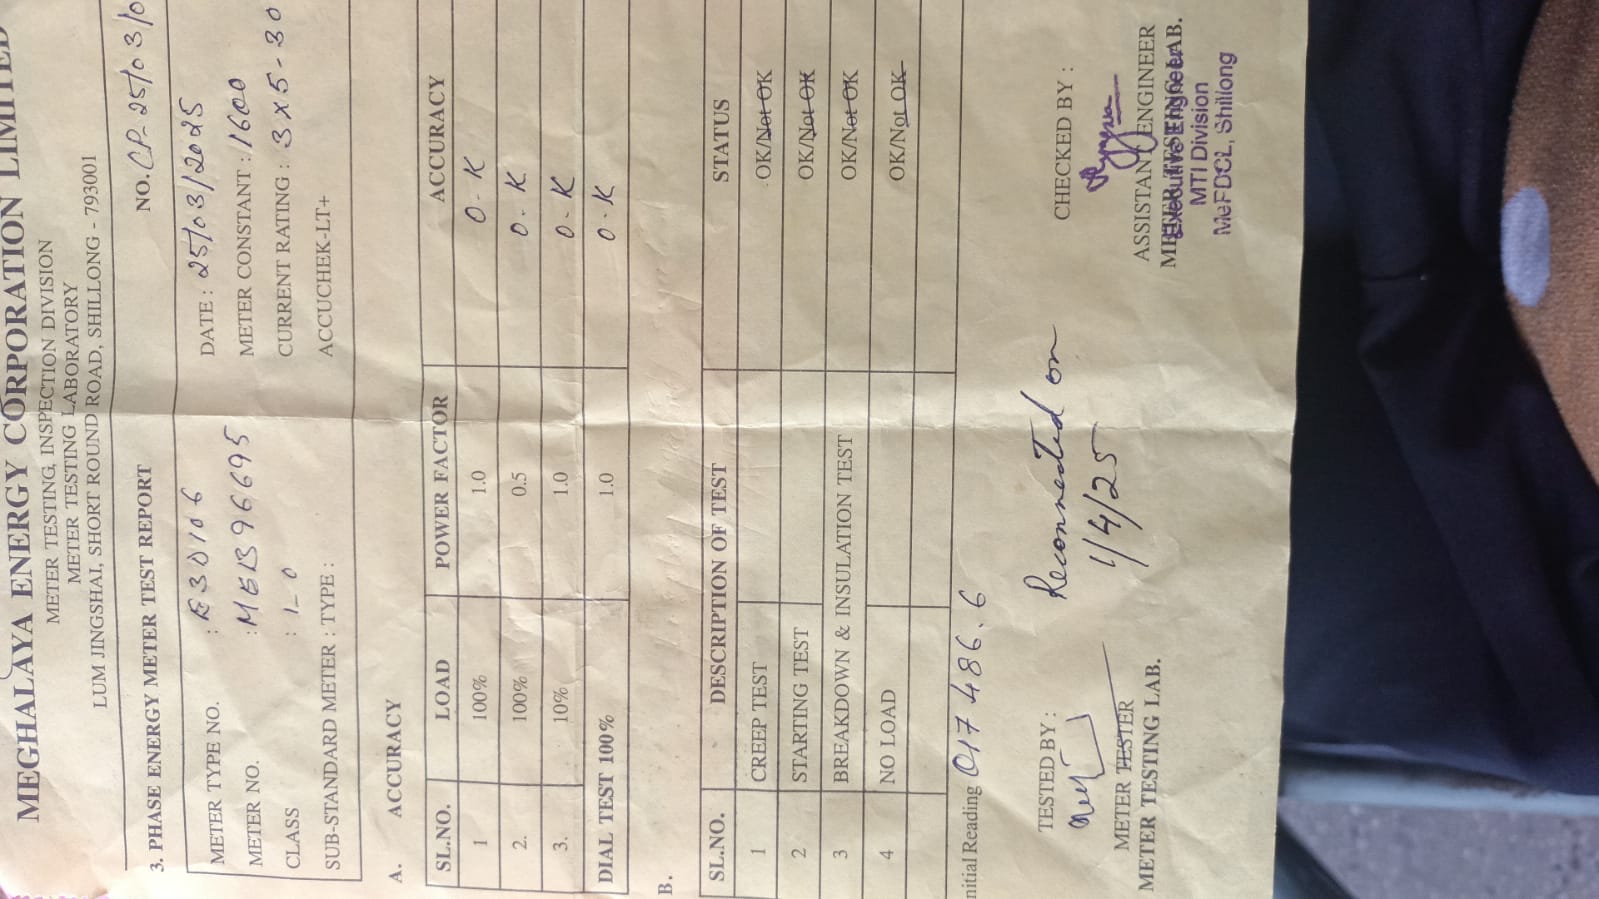 MEGHALAYA ENERGY CORPORATION LIMITED
METER TESTING, INSPECTION DIVISION
METER TESTING LABORATORY
LUM JINGSHAI, SHORT ROUND ROAD, SHILLONG - 793001
3. PHASE ENERGY METER TEST REPORT NO. CP-25/03/0
METER TYPE NO. : E30106 DATE : 25/03/2025
METER NO. : MEB96695 METER CONSTANT : 1600
CLASS : 1-0 CURRENT RATING : 3x5-30
SUB-STANDARD METER : TYPE : ACCUCHEK-LT+
A. ACCURACY
SL.NO. LOAD POWER FACTOR ACCURACY
1 100% 1.0 O-K
2. 100% 0.5 O-K
3. 10% 1.0 O-K
DIAL TEST 100% 1.0 O-K
B.
SL.NO. DESCRIPTION OF TEST STATUS
1 CREEP TEST OK/Not OK
2 STARTING TEST OK/Not OK
3 BREAKDOWN & INSULATION TEST OK/Not OK
4 NO LOAD OK/Not OK
nitial Reading 017486.6
TESTED BY : Reconnected on CHECKED BY :
1/4/25
METER TESTER ASSISTANT ENGINEER
METER TESTING LAB. METER TESTING LAB.
Executive Engineer
MTI Division
MePDCL, Shillong